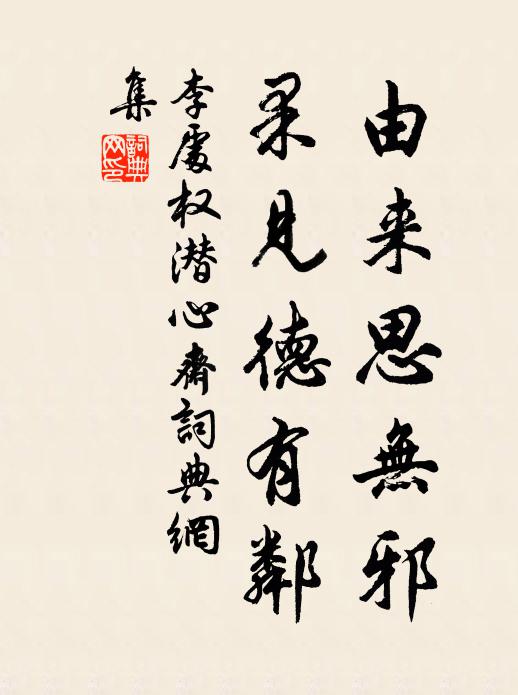 由来思無邪
果見德有鄰
李處权潜心齋詞典網
集
詞典网印